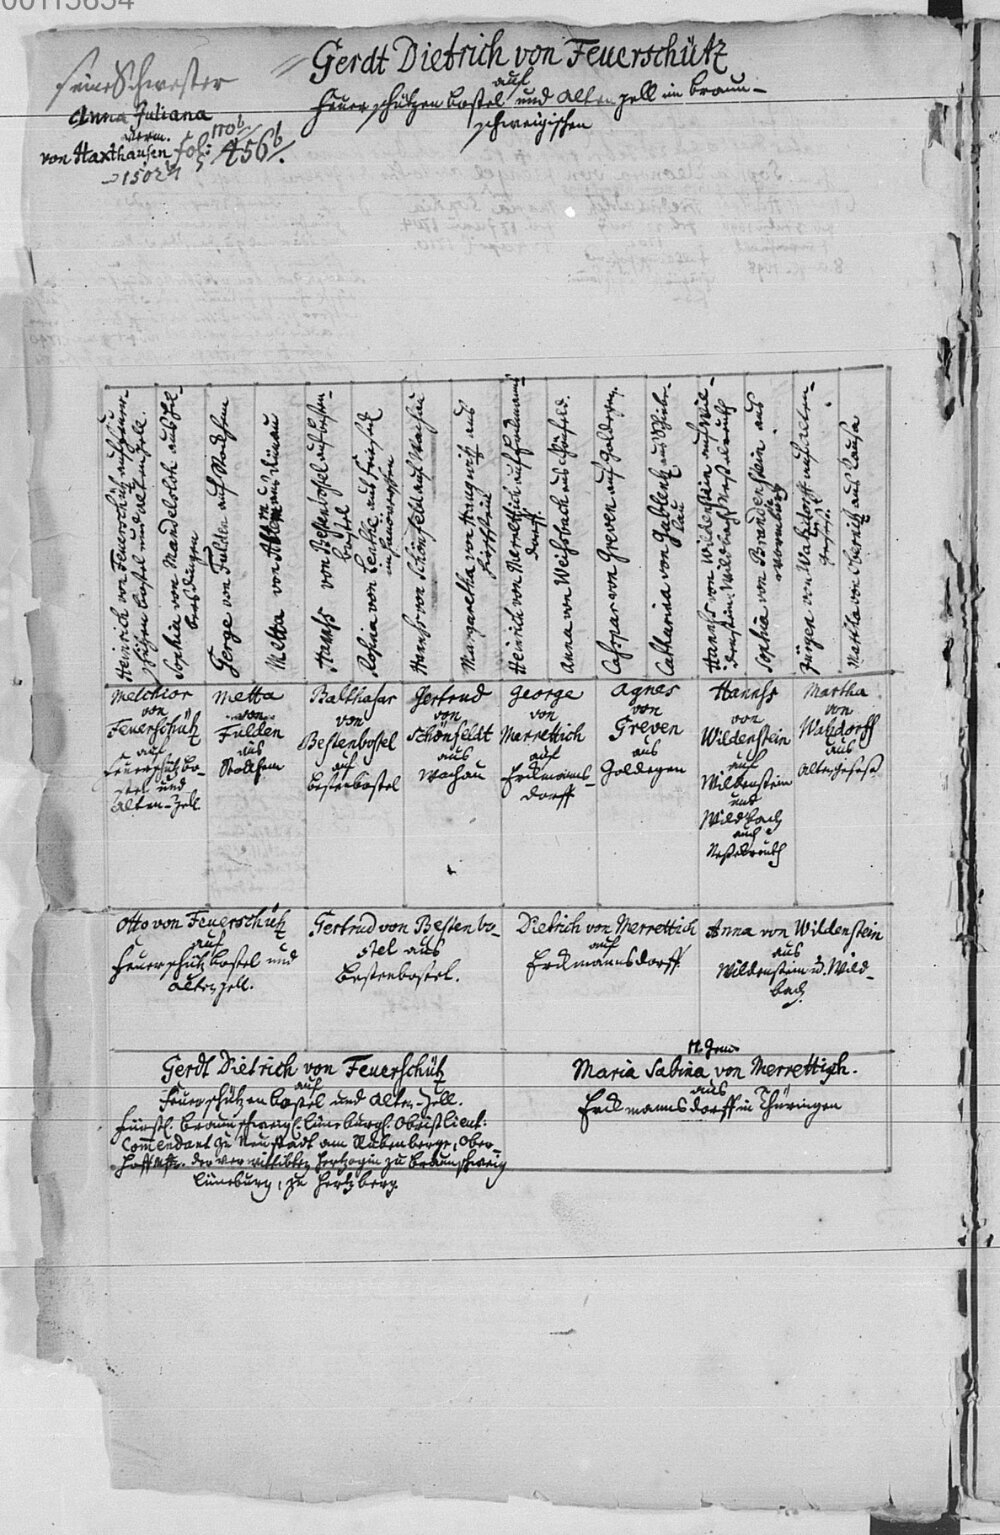 00113654
seine Schwester
Anna Juliana
verm.
von Haxthausen fol: 170b
456b
1502
Gerdt Dietrich von Feuerschütz
auf
Feuerschützenbostel und Altenzell im Braun-
schweigischen
Heinrich von Feuerschütz auf Feuer-
schützenbostel und Altenzell.
Sophia von Mandelsloh aus
Gerge von Fulden auf Stockhem
Metta von
Hannss von Bestenbostel auf Besten-
bostel
Rosina von
Hannss von Schönfeldt auf Wachau
Margaretha von Haugwitz aus
Heinrich von Merrettich auf Erdmanns-
dorff.
Anna von Weissbach aus
Casspar von Greven auf Goldegen.
Catharina von Gablentz aus
Hannss von Wildenstein auf Wil-
denstein, Wildbach
Sophia von Brandenstein aus
Jürgen von Watzdorff auf Alten-
gesess.
Martha von Obernitz aus
Melchior
von
Feuerschütz
auf
Feuerschützbo-
stel und
Alten-Zell
Metta
von
Fulden
aus
Stockhem
Balthasar
von
Bestenbostel
auf
Bestenbostel
Gertrud
von
Schönfeldt
aus
Wachau
George
von
Marrettich
auf
Erdmanns-
dorff
Agnes
von
Greven
aus
Goldegen
Hannss
von
Wildenstein
auf
Wildenstein
und
Wildbach
auch
Martha
von
Watzdorff
aus
Altengesess
Otto von Feuerschütz
auf
Feuerschützbostel und
Altenzell.
Gertrud von Bestenbo-
stel aus
Bestenbostel.
Dietrich von Merrettich
auf
Erdmannsdorff.
Anna von Wildenstein
aus
Wildenstein u. Wild-
bach.
Gerdt Dietrich von Feuerschütz
auf
Feuerschützenbostel und Alten-Zell.
Fürstl. Braunschweig. Lüneburg. Obristlieut:
Commendant zu Neustadt am Rübenberge, Ober-
Hoffmstr. der verwittibten Hertzogin zu Braunschweig
Lüneburg, zu Hertzberg
Maria Sabina von Merrettigh.
aus
Erdmannsdorff in Thüringen